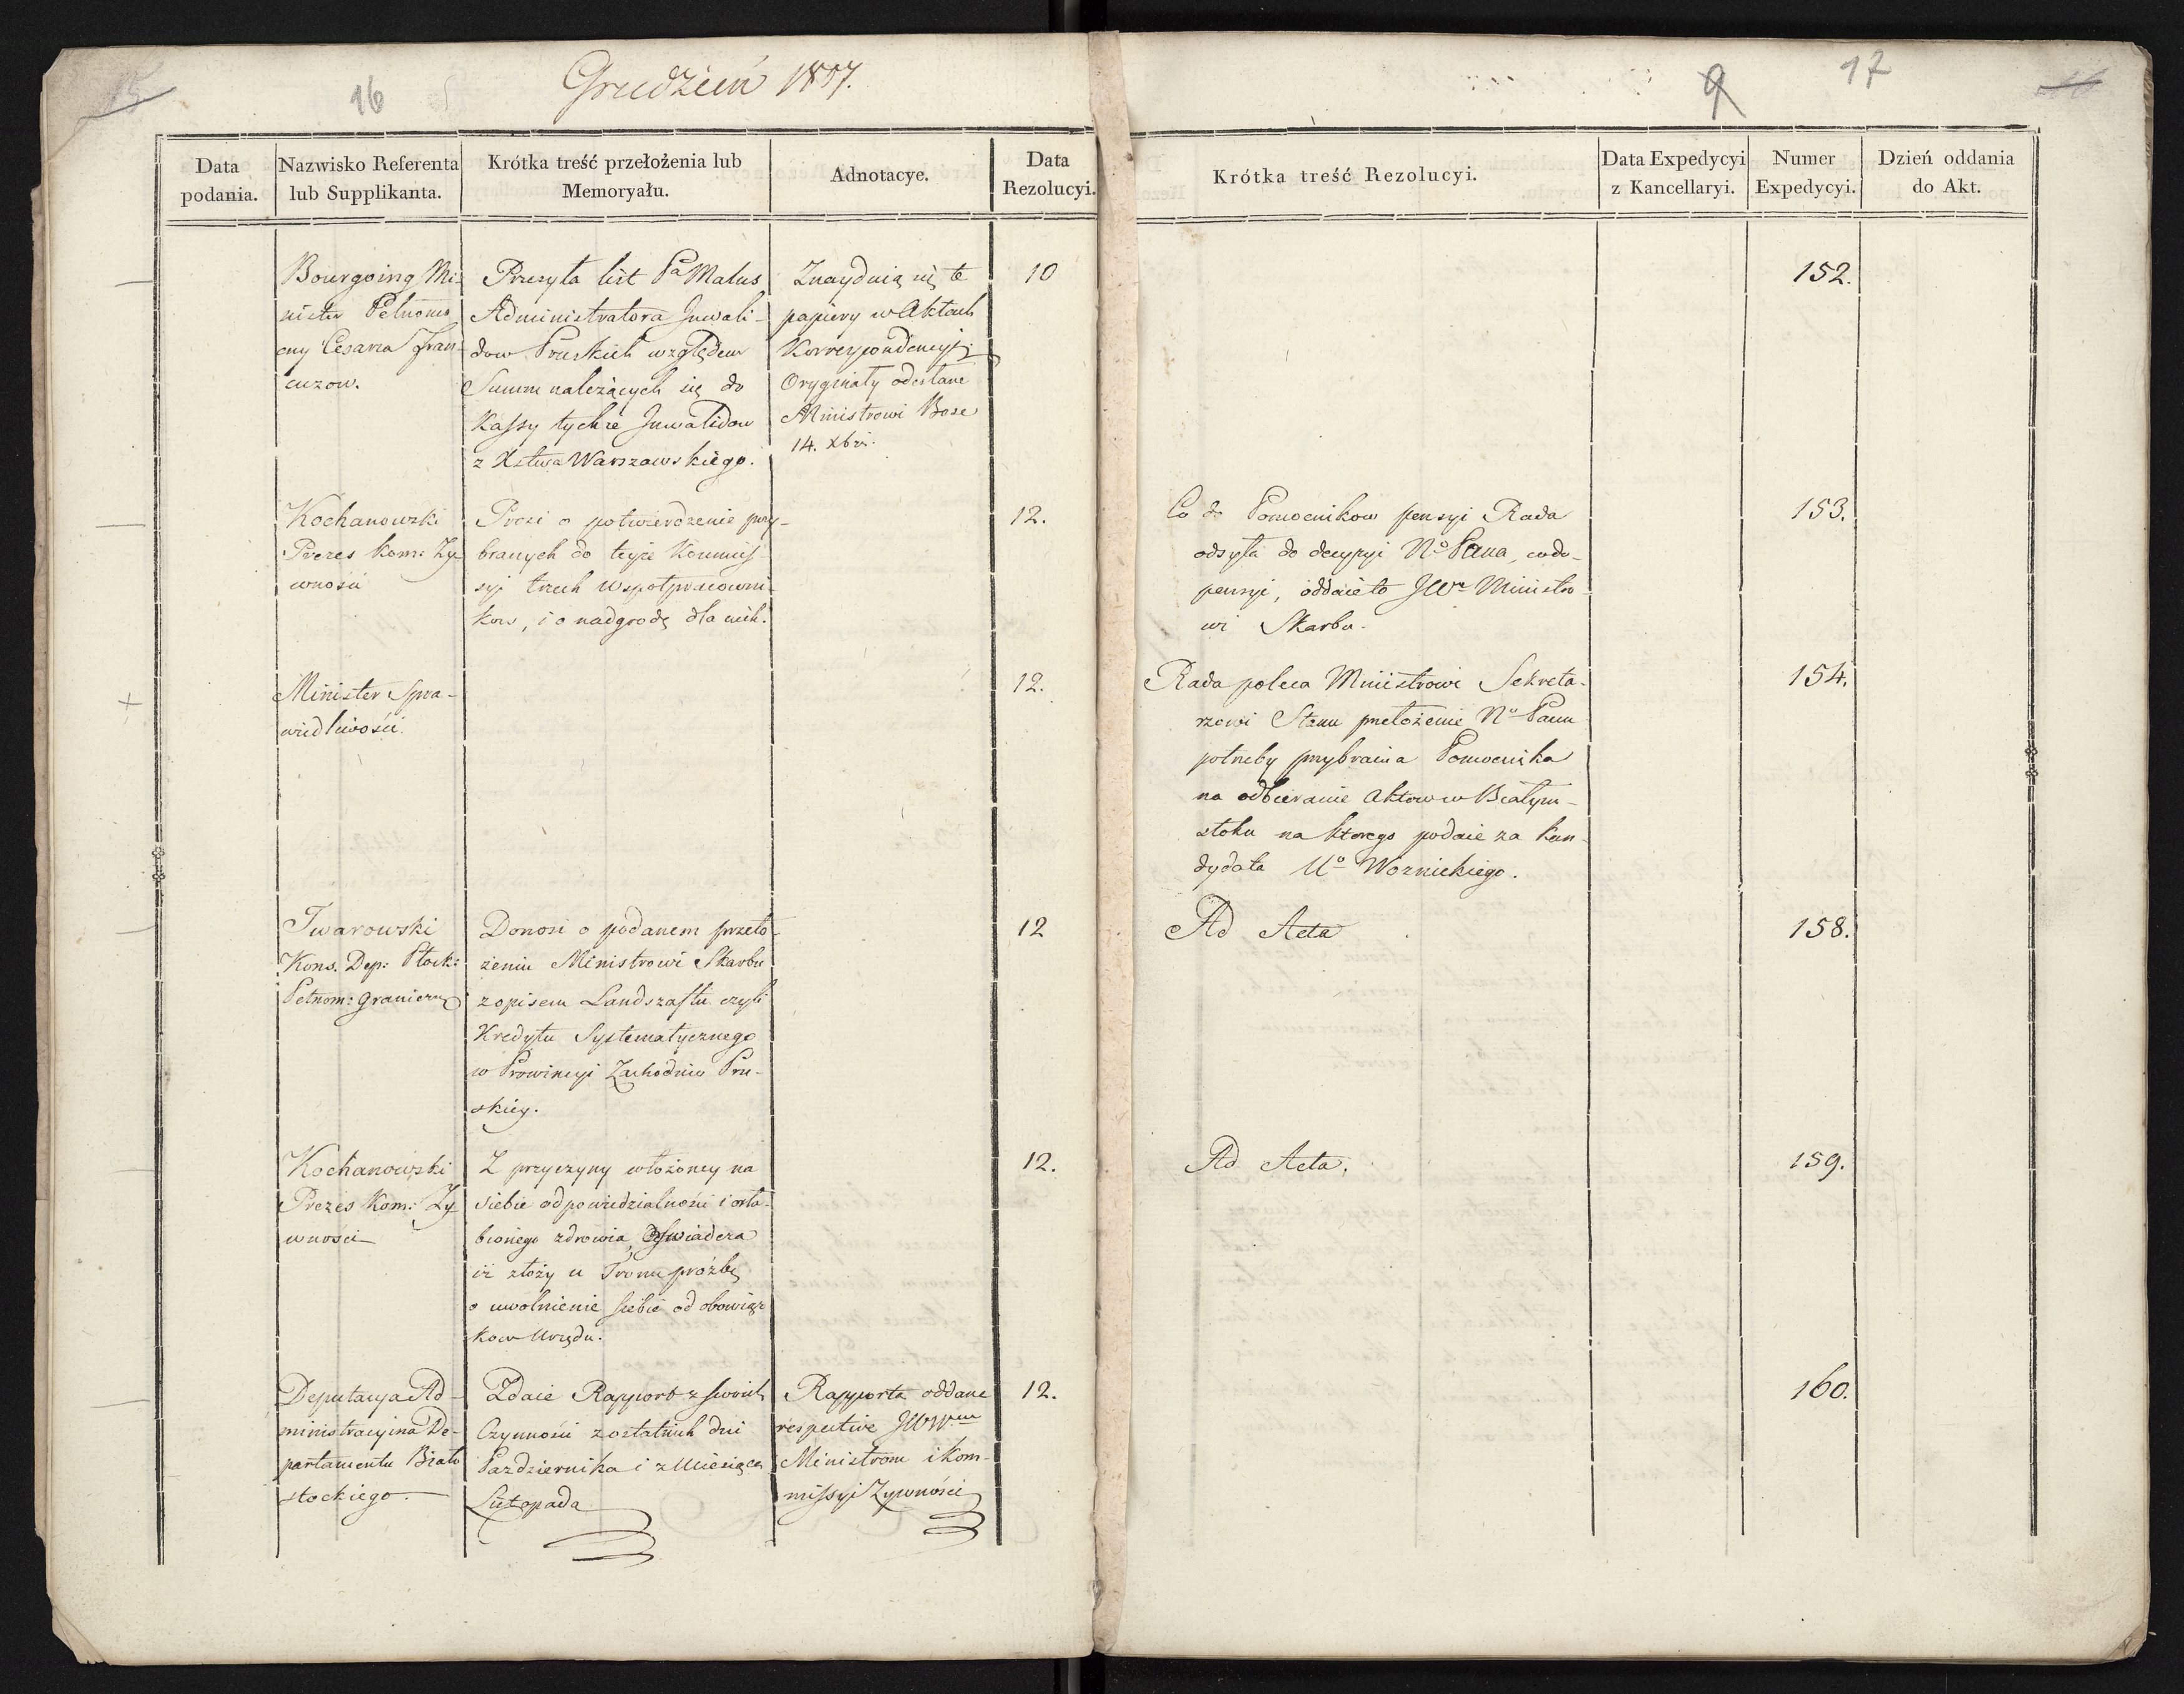 15
16
Grudzień 1807.
9
17
16
Data podania.
Nazwisko Referenta lub Supplikanta.
Krótka treść przełożenia lub Memoryału.
Adnotacye.
Data Rezolucyi.
Krótka treść Rezolucyi.
Data Expedycyi z Kancellaryi.
Numer Expedycyi.
Dzień oddania do Akt.
Bourgoing Mi-
nister Pełnomo
cny Cesarza Fran-
cuzow.
Przesyła list Pa Malus
Administratora Inwali-
dow Pruskich względem
Summ należących się do
Kassy tychże Inwalidow
z Xstwa Warszawskiego.
Znayduią się te
papiery w Aktach
Korrespondencyi
Oryginały odesłane
Ministrowi Bose
14. Xbra.
10
152.
Kochanowski
Prezes Kom: Ży-
wności
Prosi o potwierdzenie przy-
branych do teyże Kommis-
syi trzech Wspołpracowni-
kow, i o nadgrodę dla nich.
12.
Co do Pomocnikow pensyi Rada
odsyła do decyzyi No Pana, codo-
pensyi, oddaie to JWu Ministro-
wi Skarbu.
153.
Minister Spra-
wiedliwości.
12.
Rada poleca Ministrowi Sekreta-
rzowi Stanu przełożenie No Panu
potrzeby przybrania Pomocnika
na odbieranie Aktow w Białym-
stoku na ktorego podaie za kan-
dydata Uo Woznickiego.
154.
Twarowski
Kons. Dep: Płock:
Pełnom: Graniczny
Donosi o podanem przeło-
żeniu Ministrowi Skarbu
z opisem Landszaftu czyli
Kredytu Systematycznego
w Prowincyi Zachodnio Pru-
skiey.
12
Ad Acta
158.
Kochanowski
Prezes Kom: Ży-
wności
Z przyczyny włożoney na
siebie odpowiedzialności i osła-
bionego zdrowia, Oswiadcza
iż złoży u Tronu prożbę
o uwolnienie siebie od obowiąz-
kow Urzędu.
12.
Ad Acta.
159.
Deputacya Ad-
ministracyina De-
partamentu Biało
stockiego.
Zdaie Rapport z swoich
Czynności z ostatnich dni
Pazdziernika i z Miesiąca
Listopada
Rapporta oddane
respective JWWm
Ministrom i Kom-
missyi Żywności
12.
160.